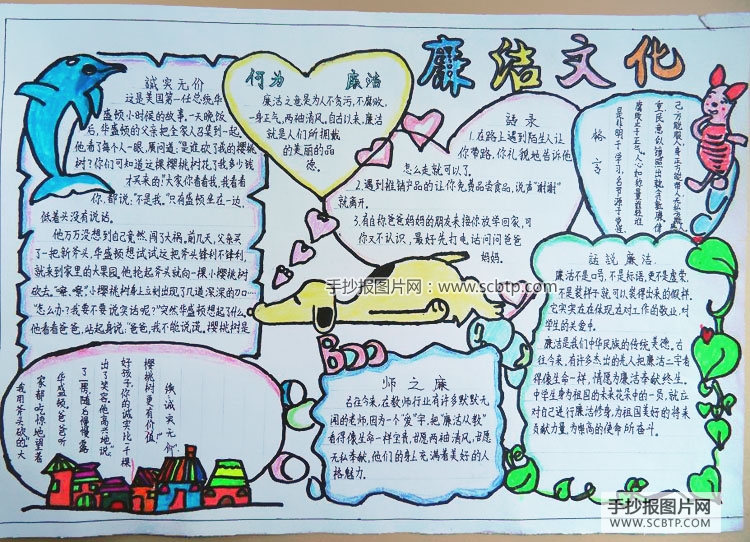 廉洁文化
誠实无价
这是美国第一任总统华
盛顿小时候的故事。一天晚饭
后,华盛顿的父亲把全家人召集到一起。
他看了每个人一眼,质问道:"是谁砍了我的樱桃
树?你们可知道这棵樱桃树花了我多少钱
才买来的!"大家你看看我,我看看
你,都说:"不是我。"只有盛顿坐在一边,
低着头没有说话。
他万万没想到自己竟然闯了大祸。前几天,父亲买
了一把新斧头,华盛顿想试试这把斧头锋利不锋利,
就来到家里的大果园,他抡起斧头就向一棵小樱桃树
砍去。"嚓,嚓"小樱桃树身上立刻出现了几道深深的刀口……
怎么办?我要不要说实话呢?"突然华盛顿想起了什么
他看看爸爸,站起身说:"爸爸,我不能说谎,樱桃树是
续:"诚实无价"
我用斧头砍的!"大
家都吃惊地望着
华盛顿,爸爸听
了一愣,随后慢慢露
出了笑容,他高兴地说:
好孩子,你的诚实比千棵
樱桃树更有价值!"
何为 廉洁
廉洁之意是为人不贪污,不腐败,
一身正气,两袖清风。自古以来,廉洁
就是人们所拥戴
的美丽的品
德。
语录
1.在路上遇到陌生人让
你带路,你礼貌地告诉他
怎么走就可以了。
2.遇到推销产品的让你免费品尝食品,说声"谢谢"
就离开。
3.有在你爸爸妈妈的朋友来接你放学回家,可
你又不认识,最好先打电话问问爸爸
妈妈。
格言
话说廉洁
廉洁不是口号,不是标语,更不是虚荣,
不是装样子就可以装得出来的假样。
它实实在在体现在对工作的敬业,对
学生的关爱中。
廉洁是我们中华民族的传统美德。古
往今来,有许多杰出的先人把廉洁二字看
得像生命一样,情愿为廉洁奉献终生。
中学生身为祖国的未来花朵中的一员,就应
对自己进行廉洁修身,为祖国美好的将来
贡献力量,为崇高的使命所奋斗。
BOO
师之廉
古往今来,在教师行业有许多默默无
闻的老师,因为一个"爱"字,把"廉洁从教"
看得像生命一样宝贵,甘愿两袖清风,甘愿
无私奉献,他们的身上充满着美好的人
格魅力。
手抄报图片网:www.scbtp.com
手抄报图片网
WWW.SCBTP.COM